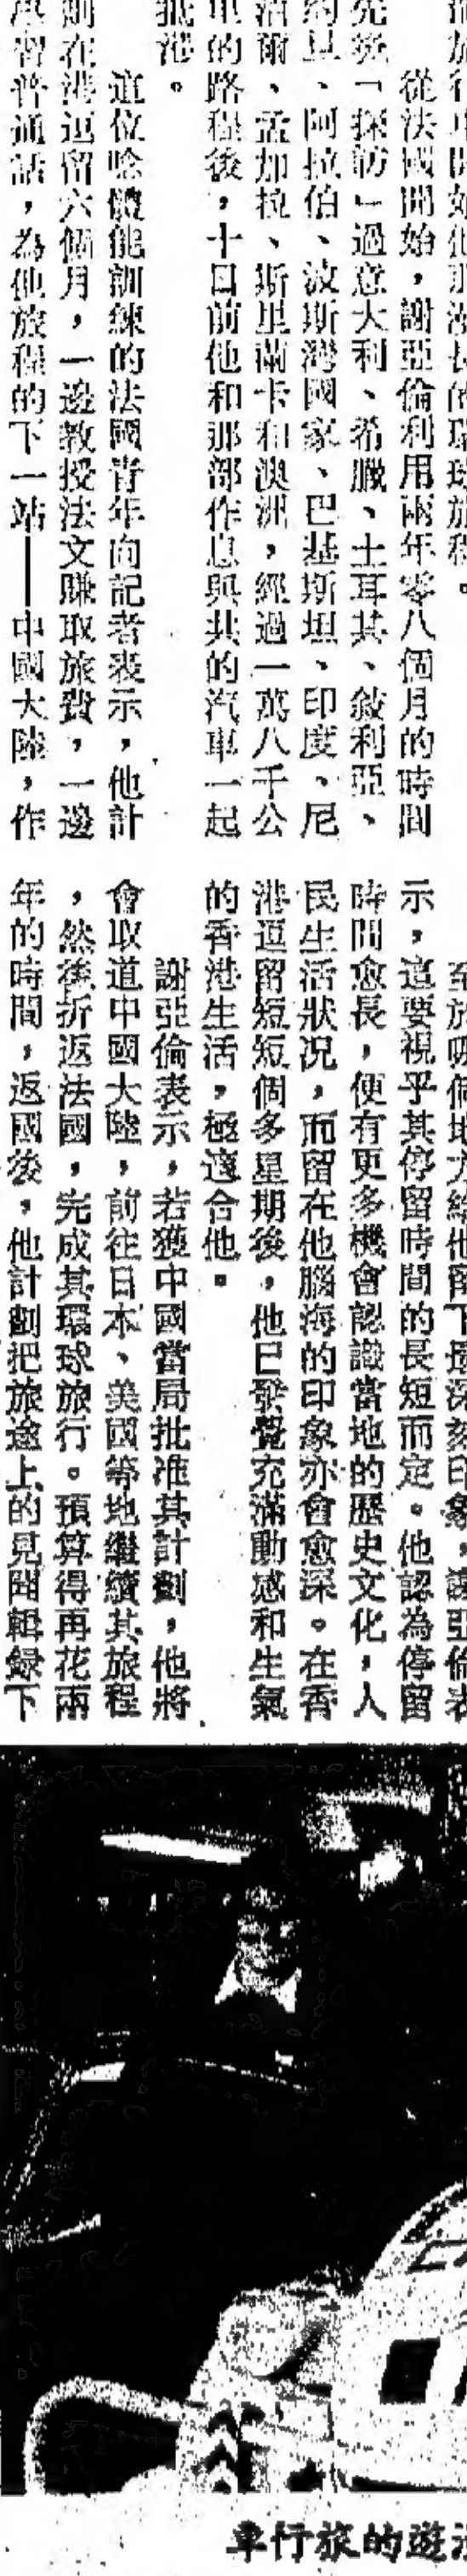 部旅行車開始他那漫長的環球旅程。
從法國開始，謝亞倫利用兩年零八個月的時間
先後「探訪」過意大利、希臘、土耳其、敍利亞、
約旦、阿拉伯、波斯灣國家、巴基斯坦、印度、尼
泊爾、孟加拉、斯里蘭卡和澳洲，經過一萬八千公
里的路程後，十日前他和那部作息與共的汽車一起
抵港。
這位唸體能訓練的法國青年向記者表示，他計
劃在港逗留六個月，一邊教授法文賺取旅費，一邊
學習普通話，為他旅程的下一站——中國大陸，作
至於哪個地方給他留下最深刻印象，謝亞倫表
示，這要視乎其停留時間的長短而定。他認為停留
時間愈長，便有更多機會認識當地的歷史文化，人
民生活狀況，而留在他腦海的印象亦會愈深。在香
港逗留短短個多星期後，他已發覺充滿動感和生氣
的香港生活，極適合他。
謝亞倫表示，若獲中國當局批准其計劃，他將
會取道中國大陸，前往日本、美國等地繼續其旅程
，然後折返法國，完成其環球旅行。預算得再花兩
年的時間，返國後，他計劃把旅途上的見聞輯錄下
車行旅的遊